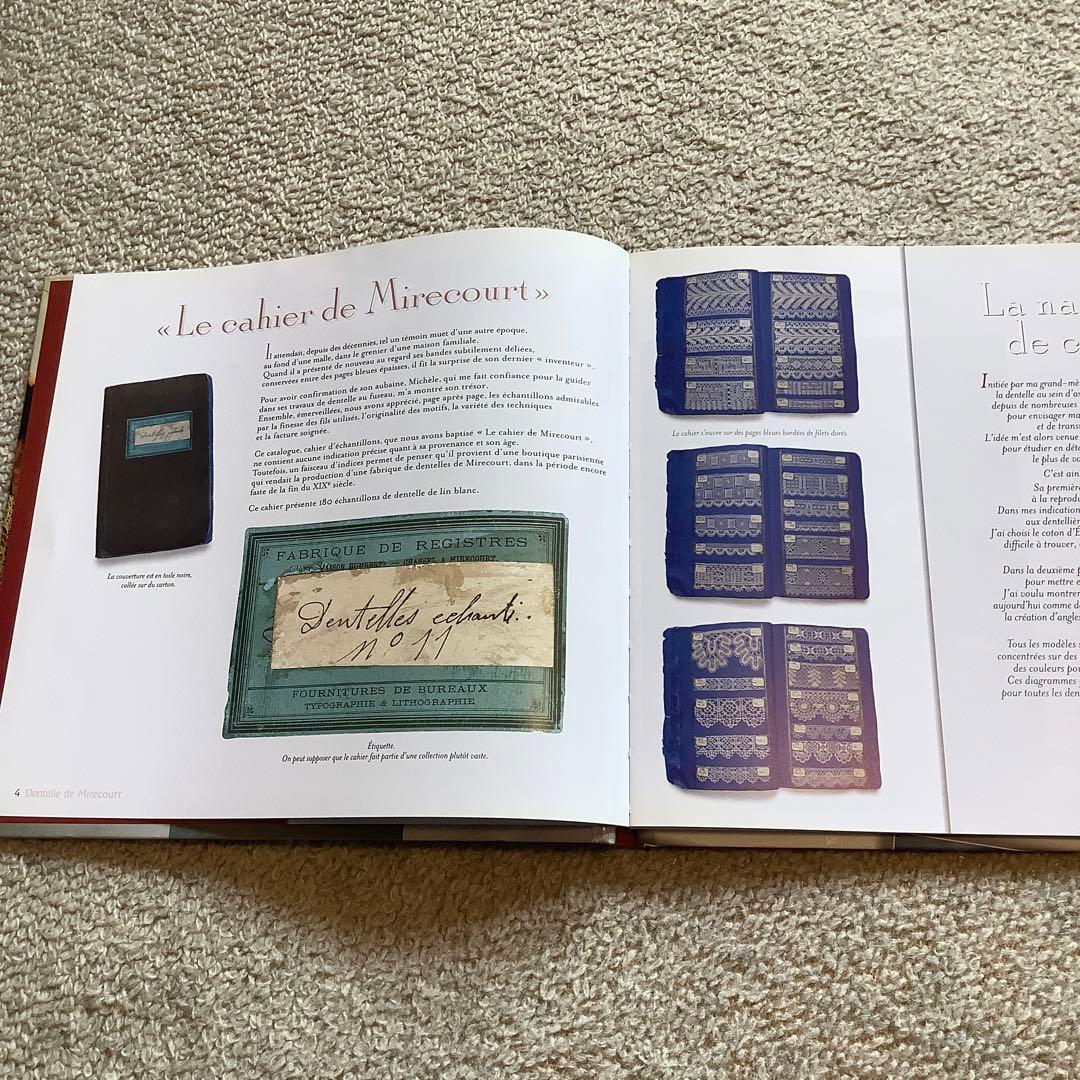 « Le cahier de Mirecourt »
Il attendait, depuis des décennies, tel un témoin muet d'une autre époque,
au fond d'une malle, dans le grenier d'une maison familiale.
Quand il a présenté de nouveau au regard ses bandes subtilement déliées,
conservées entre des pages bleues épaisses, il fit la surprise de son dernier « inventeur ».
Pour avoir confirmation de son aubaine, Michèle, qui me fait confiance pour la guider
dans ses travaux de dentelle au fuseau, m'a montré son trésor.
Ensemble, émerveillées, nous avons apprécié, page après page, les échantillons admirables
par la finesse des fils utilisés, l'originalité des motifs, la variété des techniques
et la facture soignée.
Ce catalogue, cahier d'échantillons, que nous avons baptisé « Le cahier de Mirecourt »,
ne contient aucune indication précise quant à sa provenance et son âge.
Toutefois, un faisceau d'indices permet de penser qu'il provient d'une boutique parisienne
qui vendait la production d'une fabrique de dentelles de Mirecourt, dans la période encore
faste de la fin du XIXe siècle.
Ce cahier présente 180 échantillons de dentelle de lin blanc.
La couverture est en toile noire,
collée sur du carton.
FABRIQUE DE REGISTRES
MAISON HUMBERT
CHASSEL A MIRECOURT
Dentelles echanti..
No 11
FOURNITURES DE BUREAUX
TYPOGRAPHIE & LITHOGRAPHIE
Étiquette.
On peut supposer que le cahier fait partie d'une collection plutôt vaste.
4 Dentelle de Mirecourt
Le cahier s'ouvre sur des pages bleues bordées de filets dorés.
La na
de c
Initiée par ma grand-mè
la dentelle au sein d'as
depuis de nombreuses
pour envisager ma
et de transm
L'idée m'est alors venue
pour étudier en déta
le plus de va
C'est ain
Sa première
à la reprodu
Dans mes indication
aux dentelliè
J'ai choisi le coton d'É
difficile à trouver,
Dans la deuxième p
pour mettre e
J'ai voulu montrer
aujourd'hui comme d
la création d'angles
Tous les modèles s
concentrées sur des
des couleurs pou
Ces diagrammes
pour toutes les den